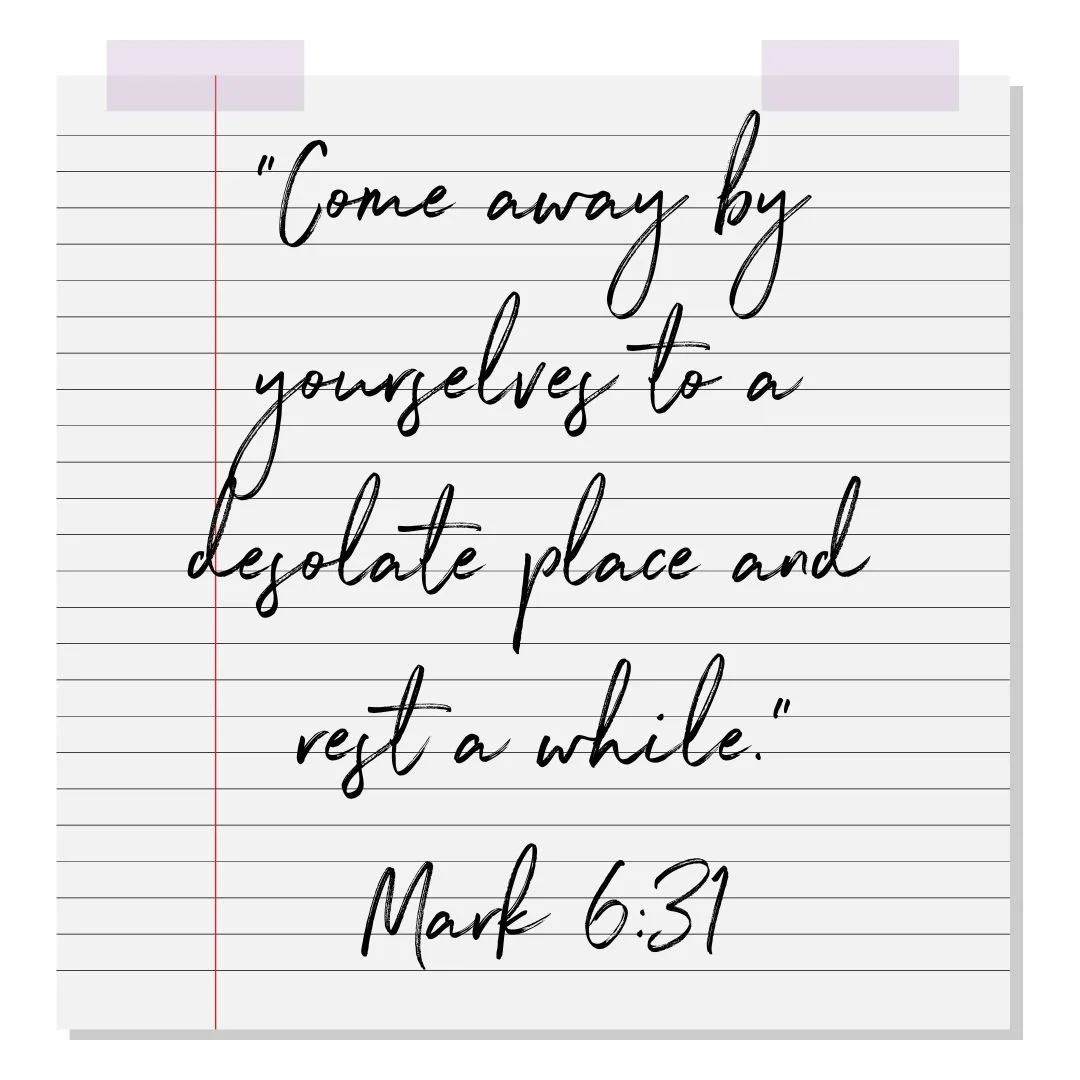 "Come away by
yourselves to a
desolate place and
rest a while."
Mark 6:31